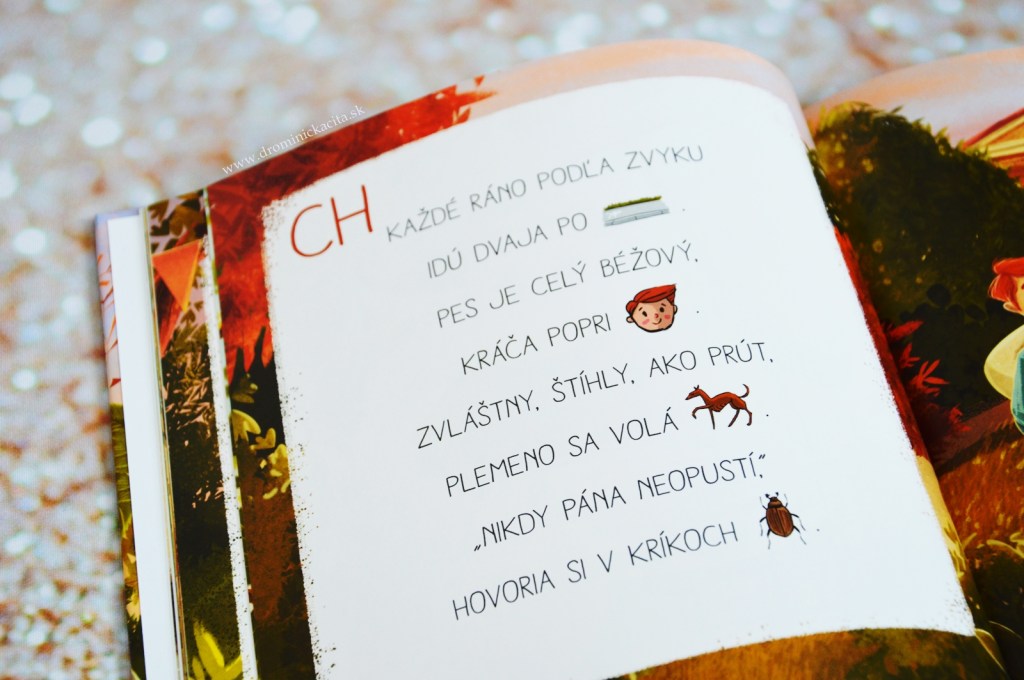 www.drominickacita.sk
CH KAŽDÉ RÁNO PODĽA ZVYKU
IDÚ DVAJA PO .
PES JE CELÝ BÉŽOVÝ,
KRÁČA POPRI .
ZVLÁŠTNY, ŠTÍHLY, AKO PRÚT,
PLEMENO SA VOLÁ .
„NIKDY PÁNA NEOPUSTÍ,“
HOVORIA SI V KRÍKOCH .